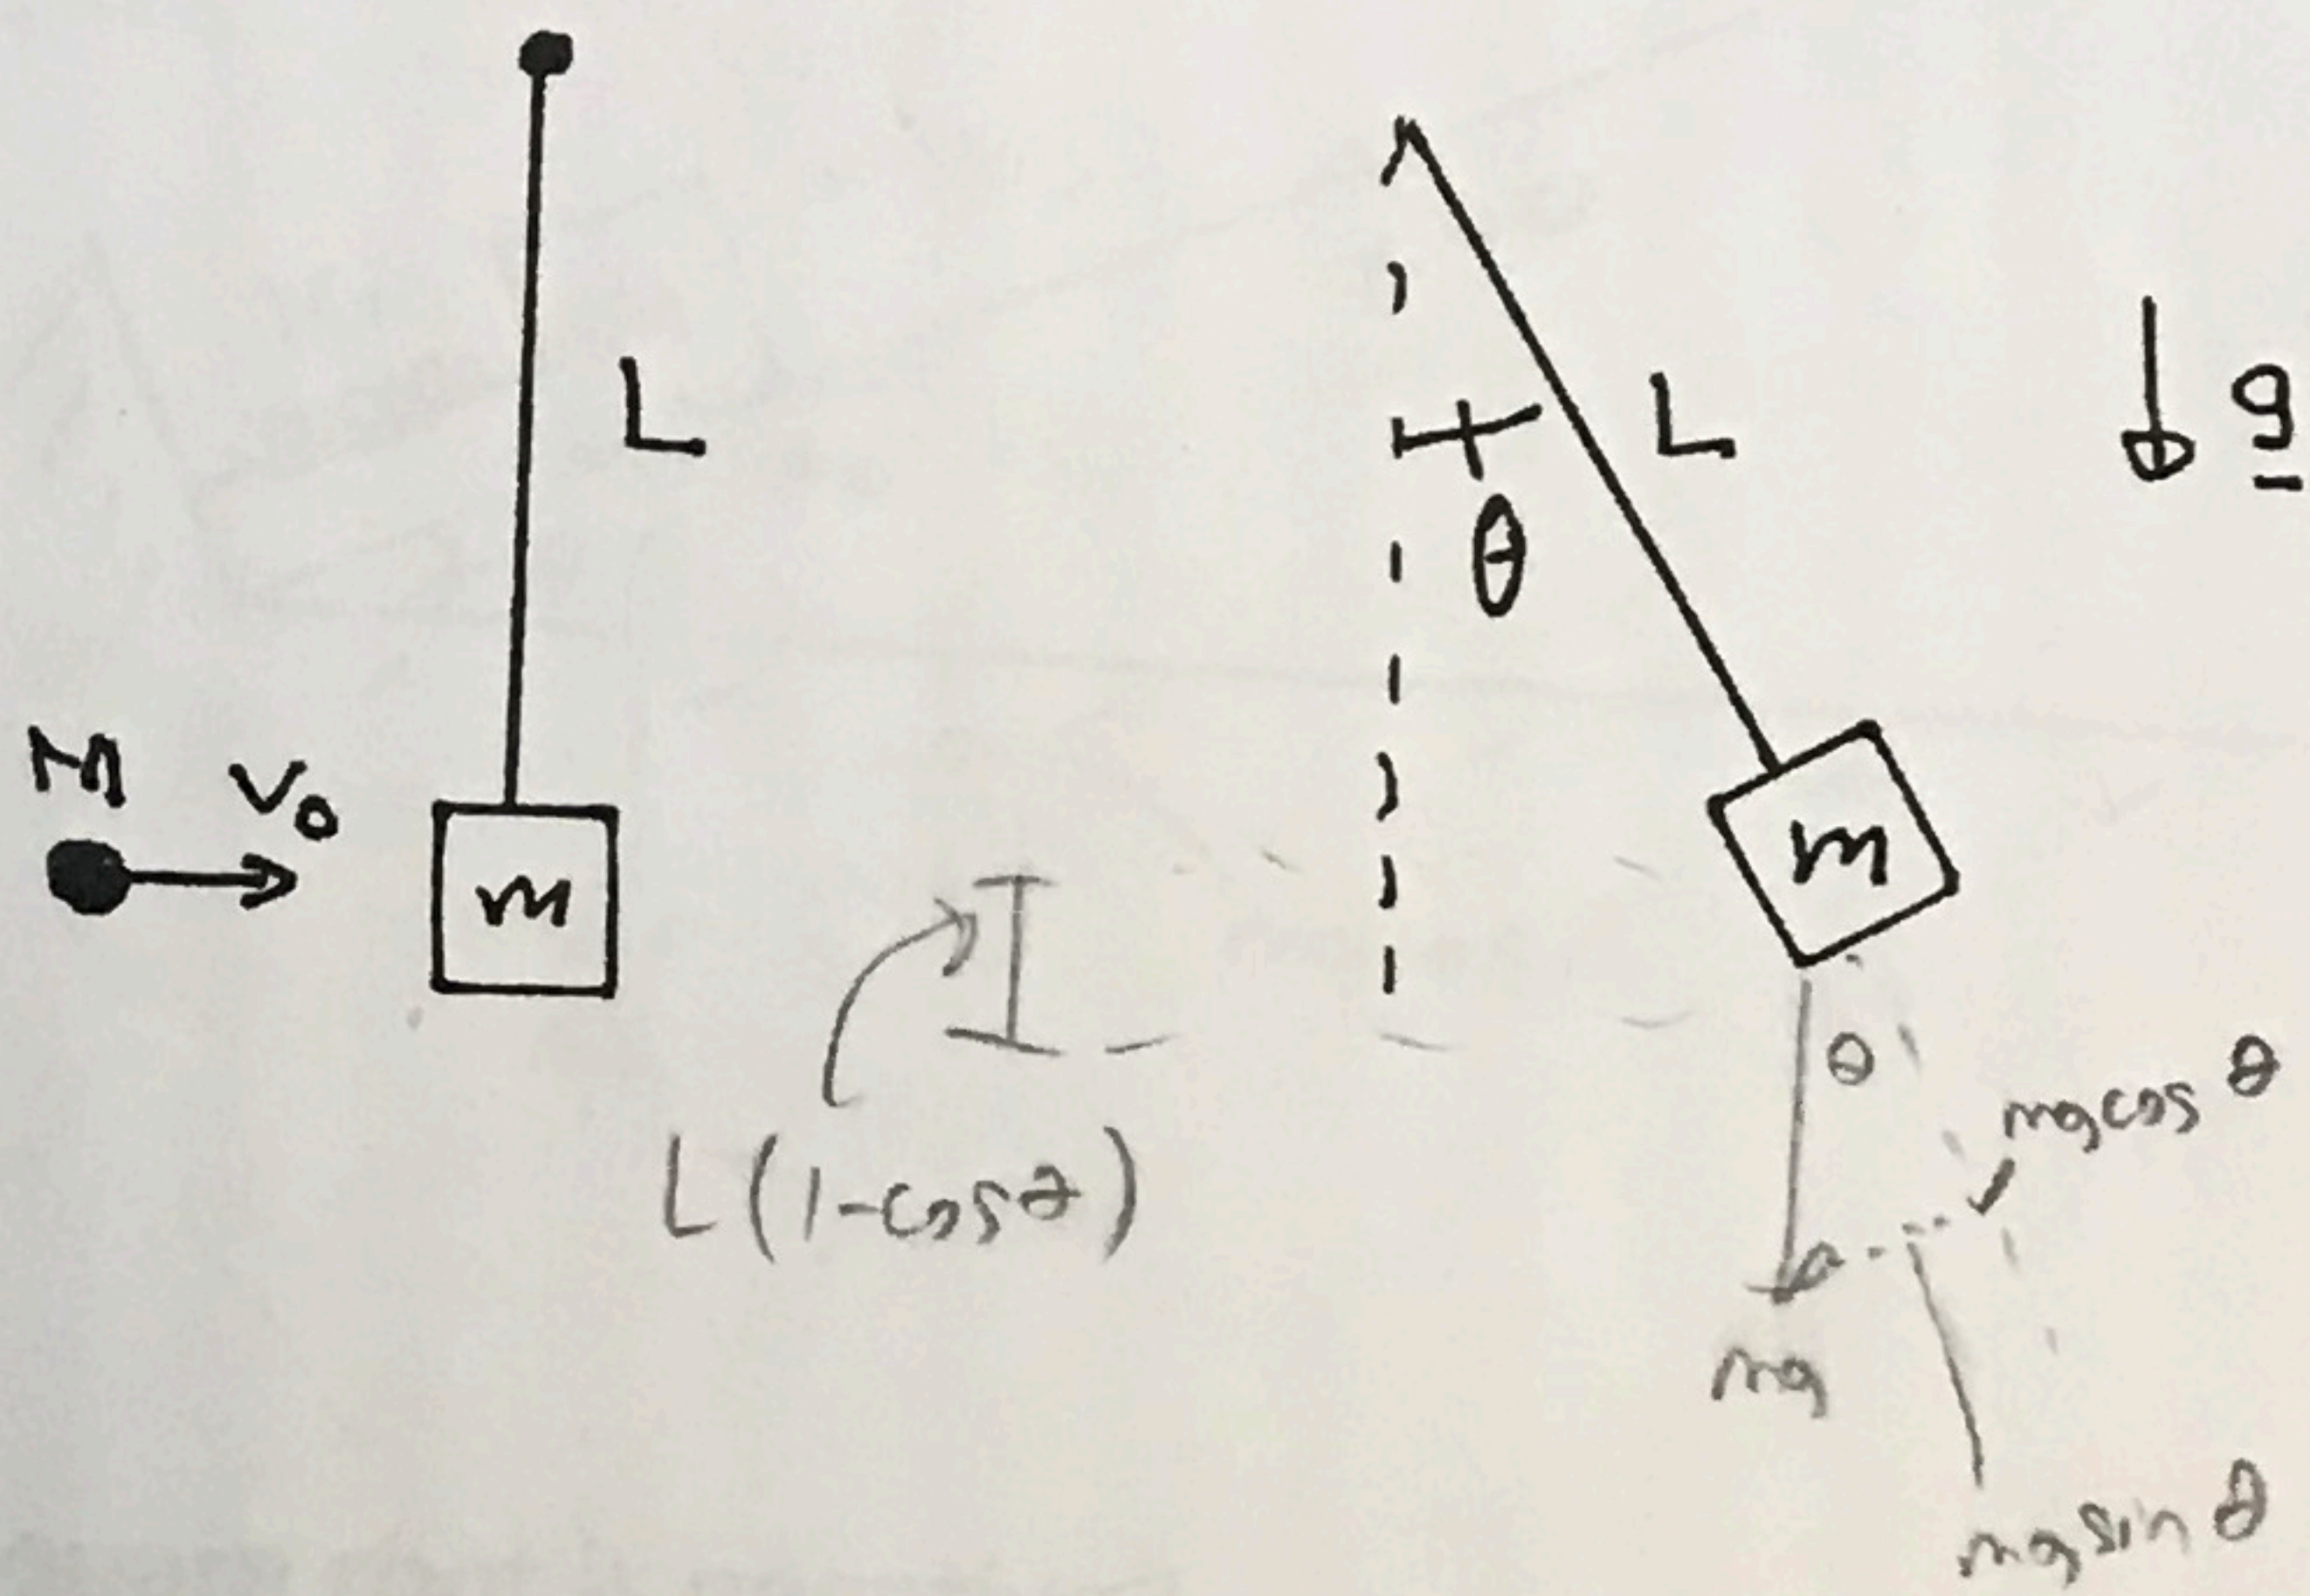 L
M
v₀
m
L
θ
m
g
L(1-cosθ)
θ
mg cos θ
mg
mg sin θ